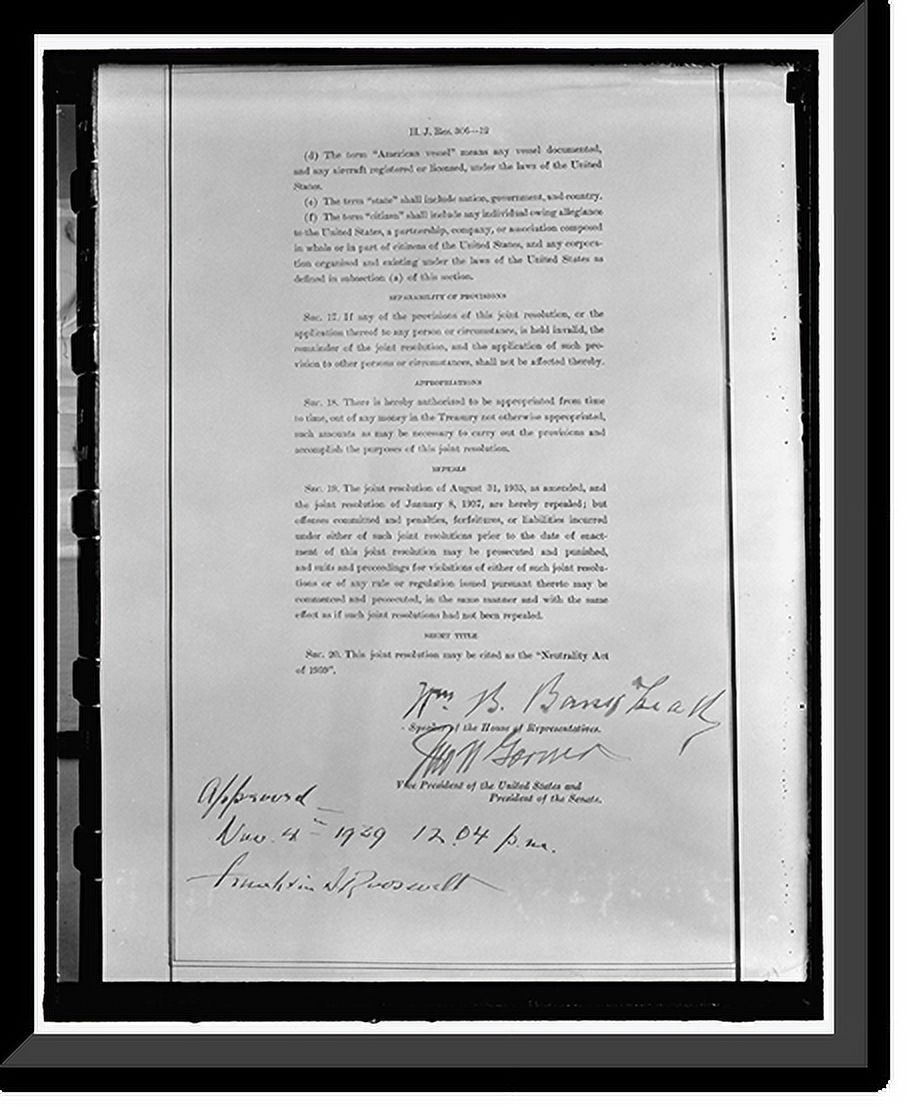 H. J. Res. 306—12
(d) The term "American vessel" means any vessel documented,
and any aircraft registered or licensed, under the laws of the United
States.
(e) The term "state" shall include nation, government, and country.
(f) The term "citizen" shall include any individual owing allegiance
to the United States, a partnership, company, or association composed
in whole or in part of citizens of the United States, and any corpora-
tion organized and existing under the laws of the United States as
defined in subsection (a) of this section.
SEPARABILITY OF PROVISIONS
Sec. 17. If any of the provisions of this joint resolution, or the
application thereof to any person or circumstance, is held invalid, the
remainder of the joint resolution, and the application of such pro-
vision to other persons or circumstances, shall not be affected thereby.
APPROPRIATIONS
Sec. 18. There is hereby authorized to be appropriated from time
to time, out of any money in the Treasury not otherwise appropriated,
such amounts as may be necessary to carry out the provisions and
accomplish the purposes of this joint resolution.
REPEALS
Sec. 19. The joint resolution of August 31, 1935, as amended, and
the joint resolution of January 8, 1937, are hereby repealed; but
offenses committed and penalties, forfeitures, or liabilities incurred
under either of such joint resolutions prior to the date of enact-
ment of this joint resolution may be prosecuted and punished,
and suits and proceedings for violations of either of such joint resolu-
tions or of any rule or regulation issued pursuant thereto may be
commenced and prosecuted, in the same manner and with the same
effect as if such joint resolutions had not been repealed.
SHORT TITLE
Sec. 20. This joint resolution may be cited as the "Neutrality Act
of 1939".
Wm B. Bankhead
Speaker of the House of Representatives.
Jno N Garner
Vice President of the United States and
President of the Senate.
Approved
Nov. 4 - 1939 12.04 p.m.
Franklin D Roosevelt